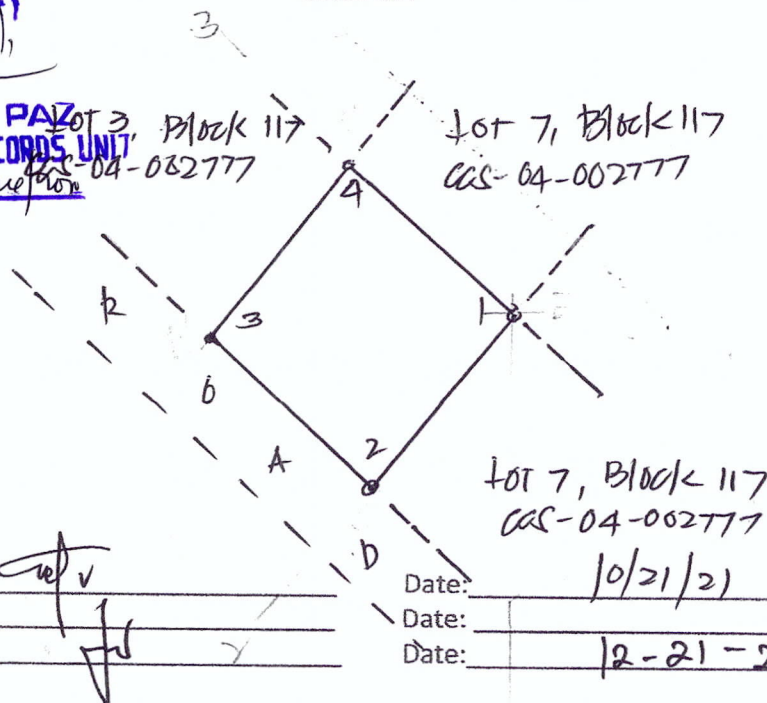 3
PAZ
CORDS UNIT
Lot 3, Block 117
-04-002777
Lot 7, Block 117
CCS-04-002777
4
1
3
2
R
O
A
D
Lot 7, Block 117
CCS-04-002777
Date: 10/21/21
Date:
Date: 12-21-2